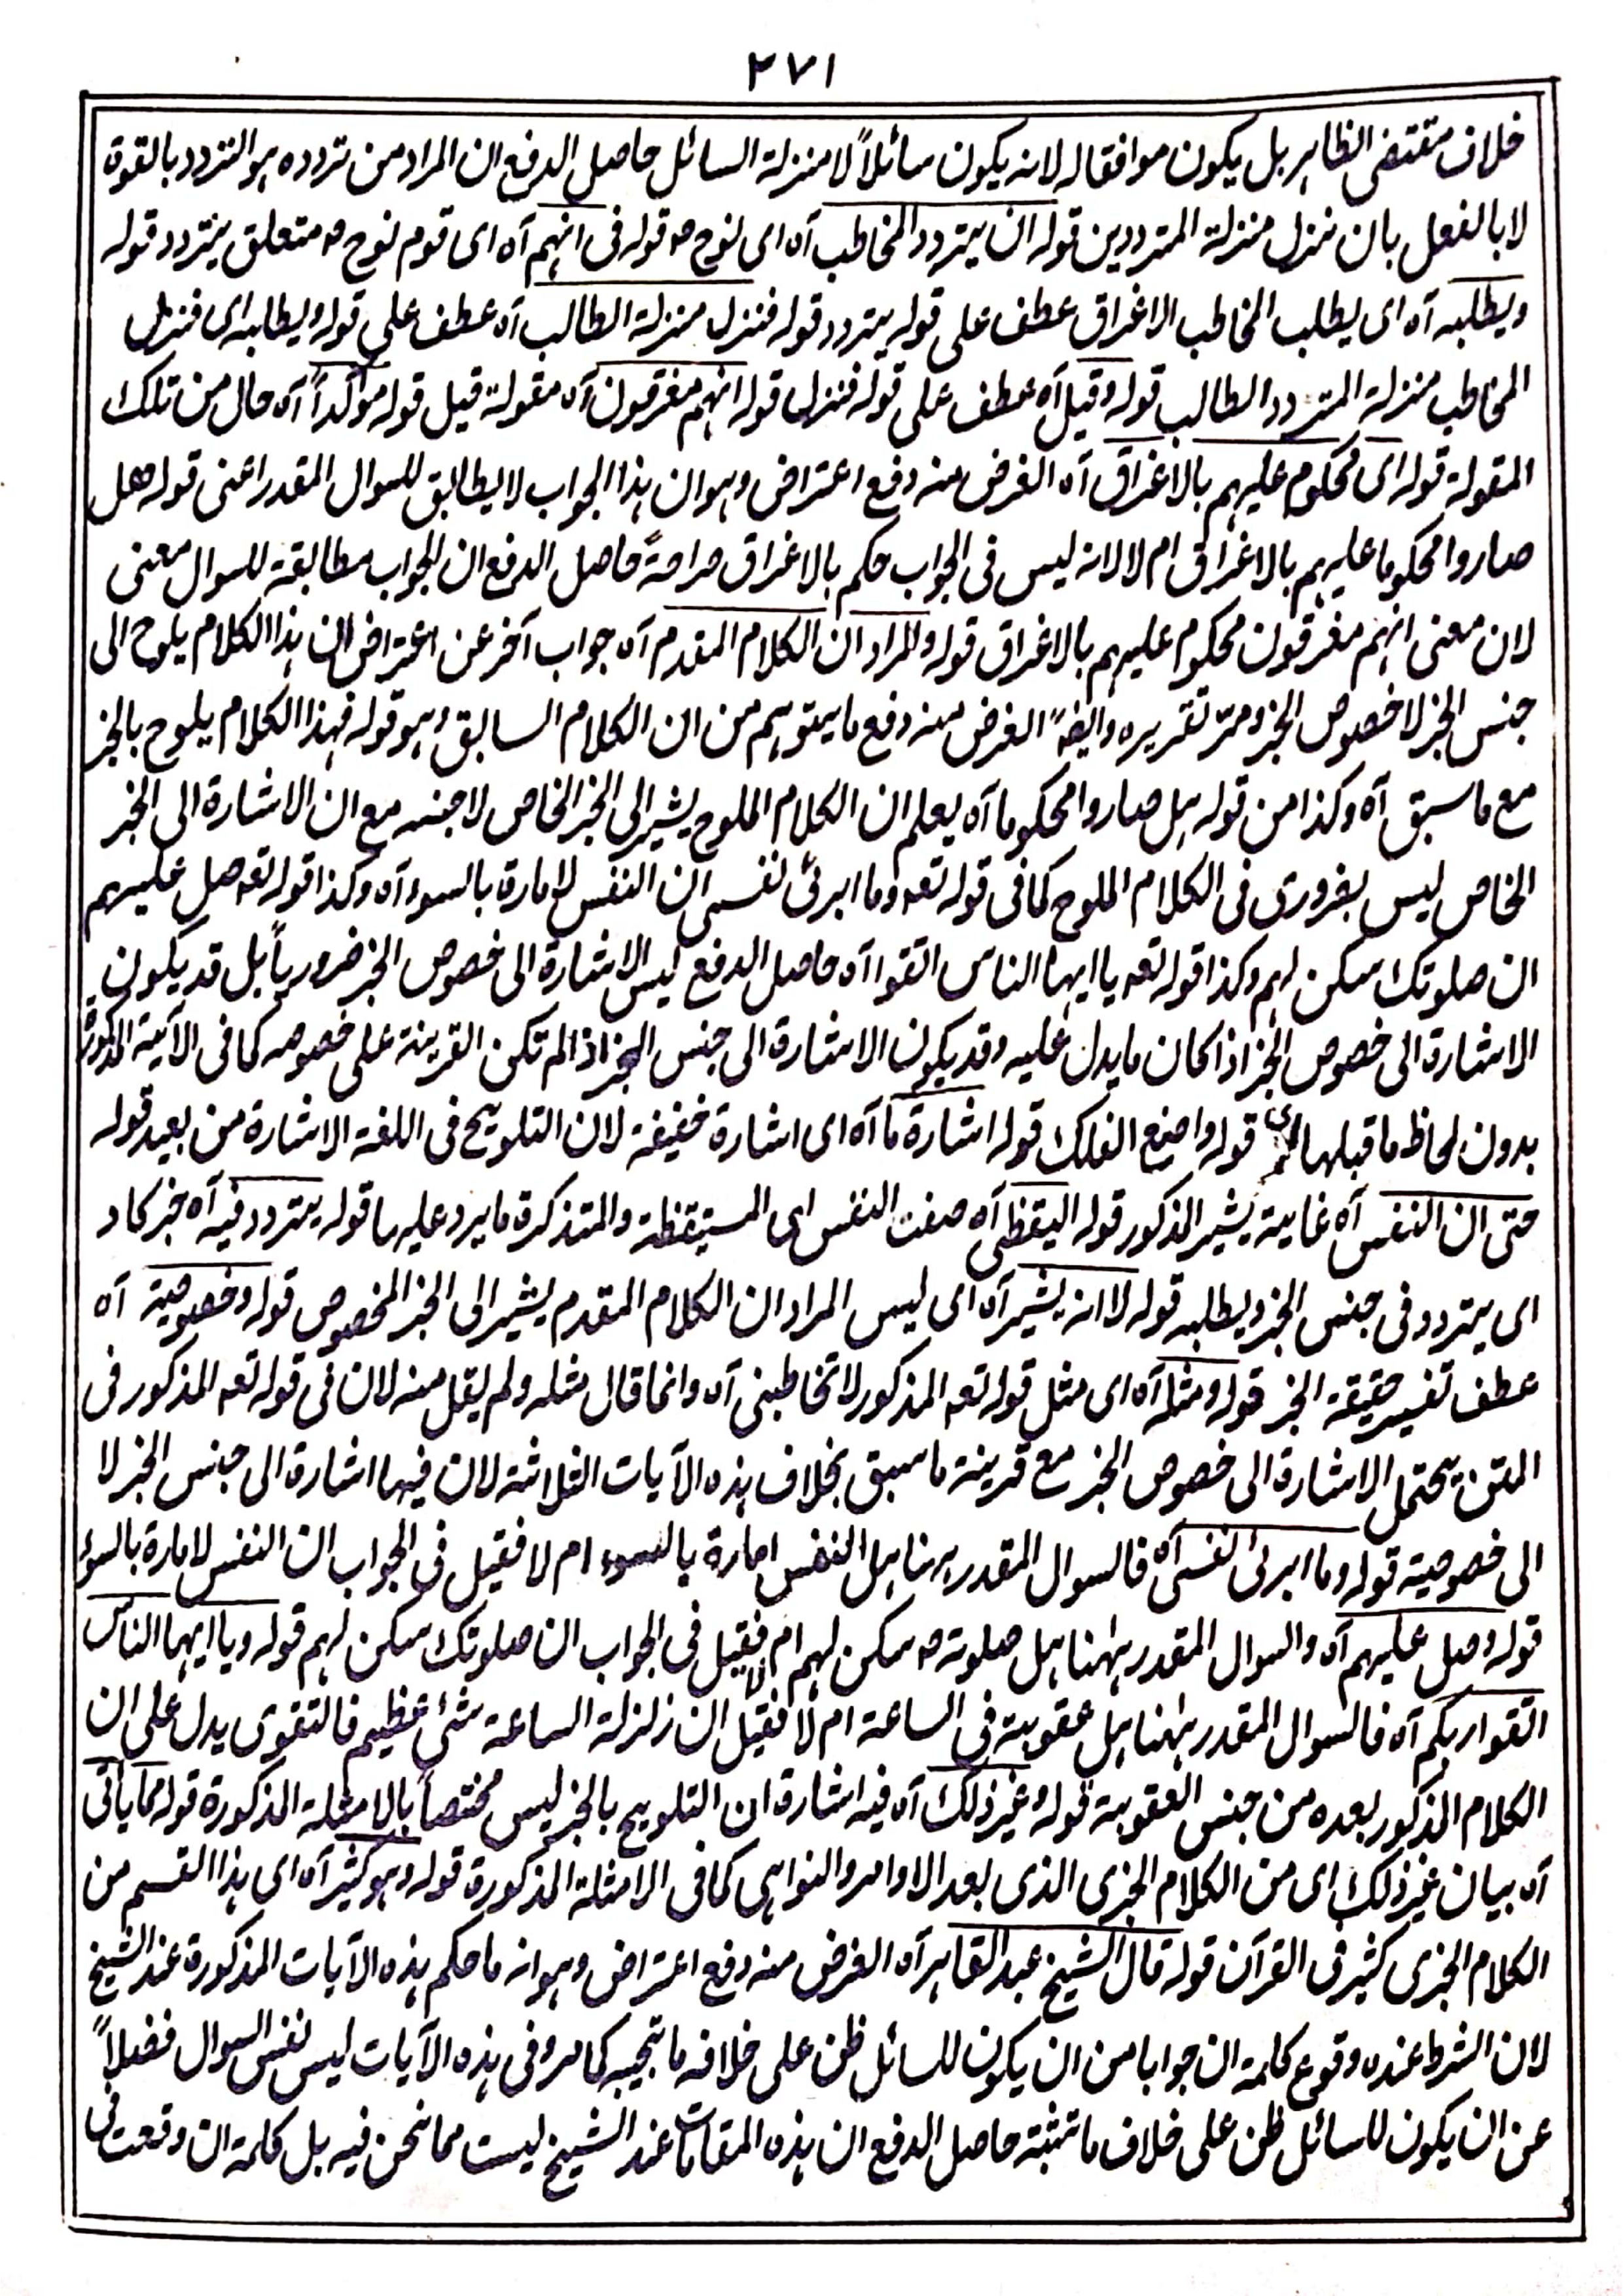 ٢٧١
خلاف مقتضى الظاهر بل يكون موافقا له لانه يكون سائلاً لا منزلة السائل حاصل الدفع ان المراد من تردده هو التردد بالقوة
لا بالفعل بان نزل منزلة المترددين قوله ان يتردد المخاطب آه اى نوح ؑ قوله فى انهم آه اى قوم نوح ؑ متعلق يتردد قوله
ويطلبه آه اى يطلب المخاطب الاغراق عطف على قوله يتردد قوله فنزل منزلة الطالب آه عطف على قوله ويطلبه اى فنزل
المخاطب منزلة المتردد الطالب قوله وقيل آه عطف على قوله فنزل قوله انهم مغرقون آه مقولة قيل قوله مؤكداً آه حال من تلك
المقولة قوله اى محكوم عليهم بالاغراق آه الغرض منه دفع اعتراض وهو ان هذا الجواب لا يطابق للسوال المقدر اعنى قوله هل
صاروا محكوما عليهم بالاغراق ام لا لانه ليس فى الجواب حكم بالاغراق صراحةً حاصل الدفع ان الجواب مطابقة للسوال معنى
لان معنى انهم مغرقون محكوم عليهم بالاغراق قوله والمراد ان الكلام المقدم آه جواب آخر عن اعتراض ان هذا الكلام يلوح الى
جنس الخبر لا خصوص الخبر ومر تقريره وايضاً الغرض منه دفع ما يتوهم من ان الكلام السابق وهو قوله فهذا الكلام يلوح بالخبر
مع ما سبق آه وكذا من قوله هل صاروا محكوما آه يعلم ان الكلام الملوح يشير الى الخبر الخاص لا جنسه مع ان الاشارة الى الخبر
الخاص ليس بضرورى فى الكلام الملوح كما فى قوله تعه وما ابرئ نفسى ان النفس لامارة بالسوء آه وكذا قوله تعه صل عليهم
ان صلوتك سكن لهم وكذا قوله تعه يا ايها الناس اتقوا آه حاصل الدفع ليس الاشارة الى خصوص الخبر ضرورياً بل قد يكون
الاشارة الى خصوص الخبر اذا كان ما يدل عليه وقد يكون الاشارة الى جنس الخبر اذا لم تكن القرينة على خصوصه كما فى الآية المذكورة
بدون لحاظ ما قبلها اى قوله واصنع الفلك قوله اشارة ما آه اى اشارة خفيفة لان التلويح فى اللغة الاشارة من بعيد قوله
حتى ان النفس آه غاية يشير المذكور قوله اليقظى آه صفت النفس اى المستيقظة والمتذكرة ما يرد عليها قوله يتردد فيه آه خبر كاد
اى يتردد فى جنس الخبر ويطلبه قوله لا انه يشير آه اى ليس المراد ان الكلام المقدم يشير الى الخبر المخصوص قوله وخصوصية آه
عطف تفسير حقيقة الخبر قوله ومثله آه اى مثل قوله تعه المذكور لا تخاطبنى آه وانما قال مثله ولم يقل منه لان فى قوله تعه المذكور فى
المتن يحتمل الاشارة الى خصوص الخبر مع قرينة ما سبق بخلاف هذه الآيات الثلاثة لان فيها اشارة الى جنس الخبر لا
الى خصوصية قوله وما ابرئ نفسى آه فالسوال المقدر ههنا هل النفس امارة بالسوء ام لا فقيل فى الجواب ان النفس لامارة بالسوء
قوله وصل عليهم آه والسوال المقدر ههنا هل صلوته ؑ سكن لهم ام لا فقيل فى الجواب ان صلوتك سكن لهم قوله ويا ايها الناس
اتقوا ربكم آه فالسوال المقدر ههنا هل عقوبة فى الساعة ام لا فقيل ان زلزلة الساعة شئ عظيم فالتقوى يدل على ان
الكلام المذكور بعده من جنس العقوبة قوله وغير ذلك آه فيه اشارة ان التلويح بالخبر ليس مختصاً بالامثلة المذكورة قوله مما يأتى
آه بيان غير ذلك اى من الكلام الخبرى الذى بعد الاوامر والنواهى كما فى الامثلة المذكورة قوله وهو كثير آه اى هذا القسم من
الكلام الخبرى كثير فى القرآن قوله قال الشيخ عبد القاهر آه الغرض منه دفع اعتراض وهو انه ما حكم هذه الآيات المذكورة عند الشيخ
لان الشرط عنده وقوع كلمة ان جوابا من ان يكون للسائل ظن على خلاف ما تجيبه كما مر وفى هذه الآيات ليس نفس السوال فضلاً
عن ان يكون للسائل ظن على خلاف ما تثبته حاصل الدفع ان هذه المقامات عند الشيخ ليست مما نحن فيه بل كلمة ان وقعت فى